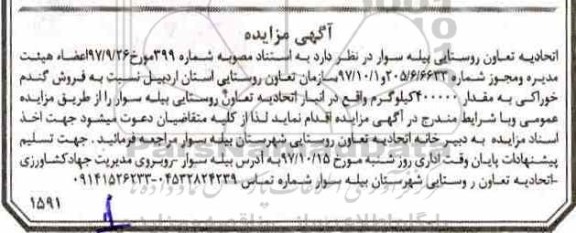 آگهی مزایده
اتحادیه تعاون روستایی بیله سوار در نظر دارد به استناد مصوبه شماره ۳۹۹مورخ۹۷/۹/۲۶اعضاء هیئت
مدیره ومجوز شماره ۲۰۵/۶/۶۶۳۳و۹۷/۱۰/۱سازمان تعاون روستایی استان اردبیل نسبت به فروش گندم
خوراکی به مقدار ۴۰۰۰۰۰کیلوگرم واقع در انبار اتحادیه تعاون روستایی بیله سوار را از طریق مزایده
عمومی وبا شرایط مندرج در آگهی مزایده اقدام نماید لذا از کلیه متقاضیان دعوت میشود جهت اخذ
اسناد مزایده به دبیر خانه اتحادیه تعاون روستایی شهرستان بیله سوار مراجعه فرمائید . جهت تسلیم
پیشنهادات پایان وقت اداری روز شنبه مورخ ۹۷/۱۰/۱۵به آدرس بیله سوار -روبروی مدیریت جهادکشاورزی
-اتحادیه تعاون ر وستایی شهرستان بیله سوار شماره تماس ۰۴۵۳۲۸۲۴۲۳۹-۰۹۱۴۱۵۲۶۲۳۳
۱۵۹۱